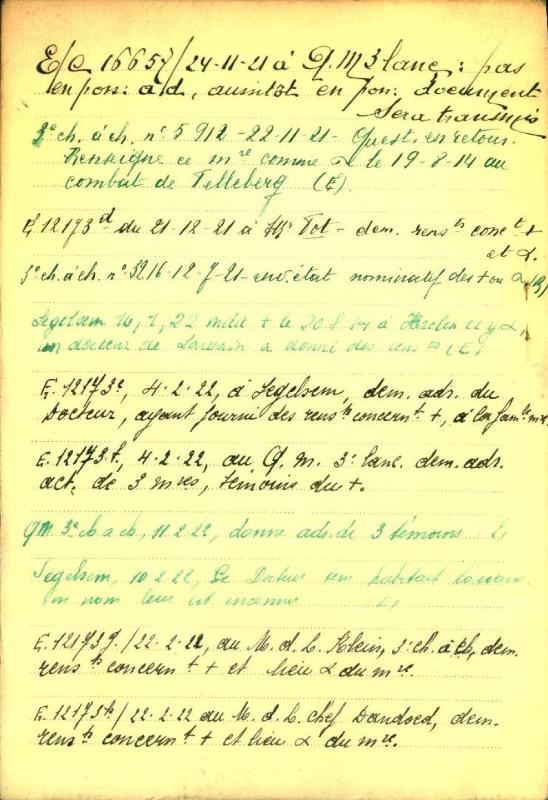 E/C 16657/24-11-21 à Q.M 3 lanc: pas
en poss: a/d, aussitôt en poss: document
sera transmis
3e ch. à ch. n° 5912 - 22-11-21 - Quest. en retour.
Renseigne ce mre comme le 19-8-14 au
combat de Tilleberg (E)
E. 12173d du 21-12-21 à Tot - dem. rensts conct +
et α.
3e ch. à ch. n° 3216-12-7-21 - env. état nominatif des + ou α (B)
Segelsem, 22 milit + le 20.8.14 à et y α,
un docteur de Louvain a donné des rensts (E)
E. 12173e, 4-2-22, à Segelsem, dem. ads. du
Docteur, ayant fourni des rensts concernt +, à la famle mre.
E. 12173f, 4-2-22, au Q. M. 3e lanc. dem. ads.
act. de 3 mres, témoins du +.
QM 3e ch à ch, 11.2.22, donne ads. de 3 témoins
Segelsem, 10.2.22, Le Docteur habitait Louvain
nom leur est inconnu (E)
E. 12173g/22-2-22, au M. d. L. Klein, 3e ch. à ch, dem.
rensts concernt + et lieu α du mre.
E. 12173h/22-2-22 au M. d. L. chef Dandoed, dem.
rensts concernt + et lieu α du mre.